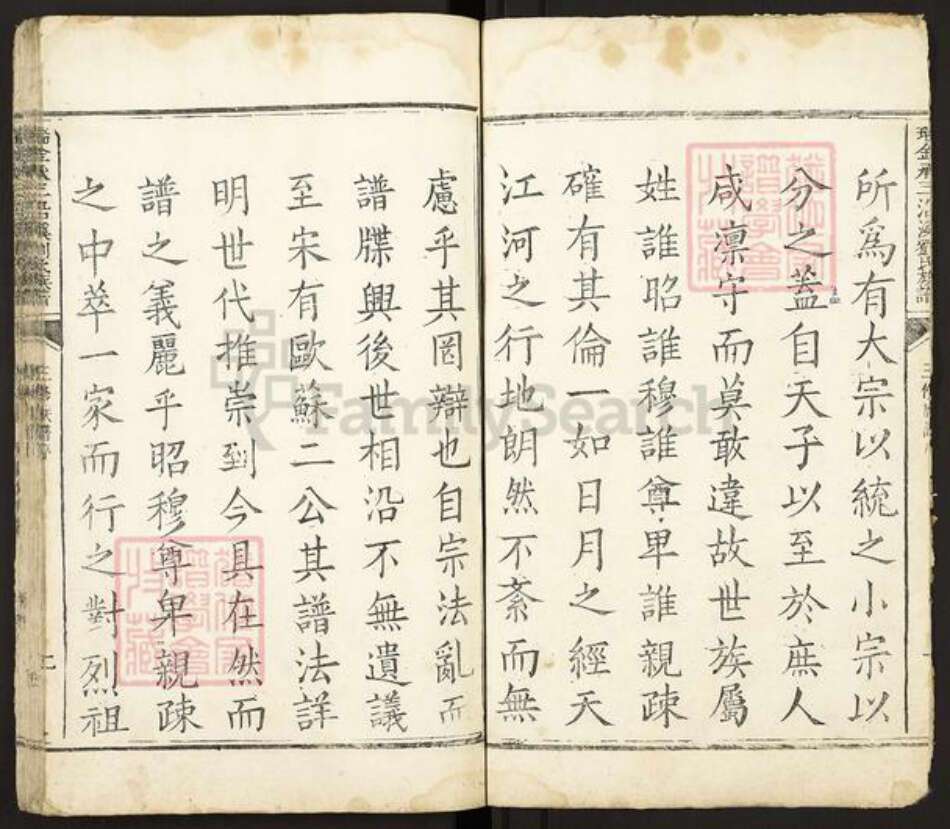 所爲有大宗以統之小宗以
分之蓋自天子以至於庶人
咸凛守而莫敢違故世族屬
姓誰昭誰穆誰尊卑誰親疎
確有其倫一如日月之經天
江河之行地朗然不紊而無
慮乎其罔辯也自宗法亂而
譜牒興後世相沿不無遺議
至宋有歐蘇二公其譜法詳
明世代推崇到今具在然而
譜之義麗乎昭穆尊卑親疎
之中萃一家而行之對烈祖
FamilySearch